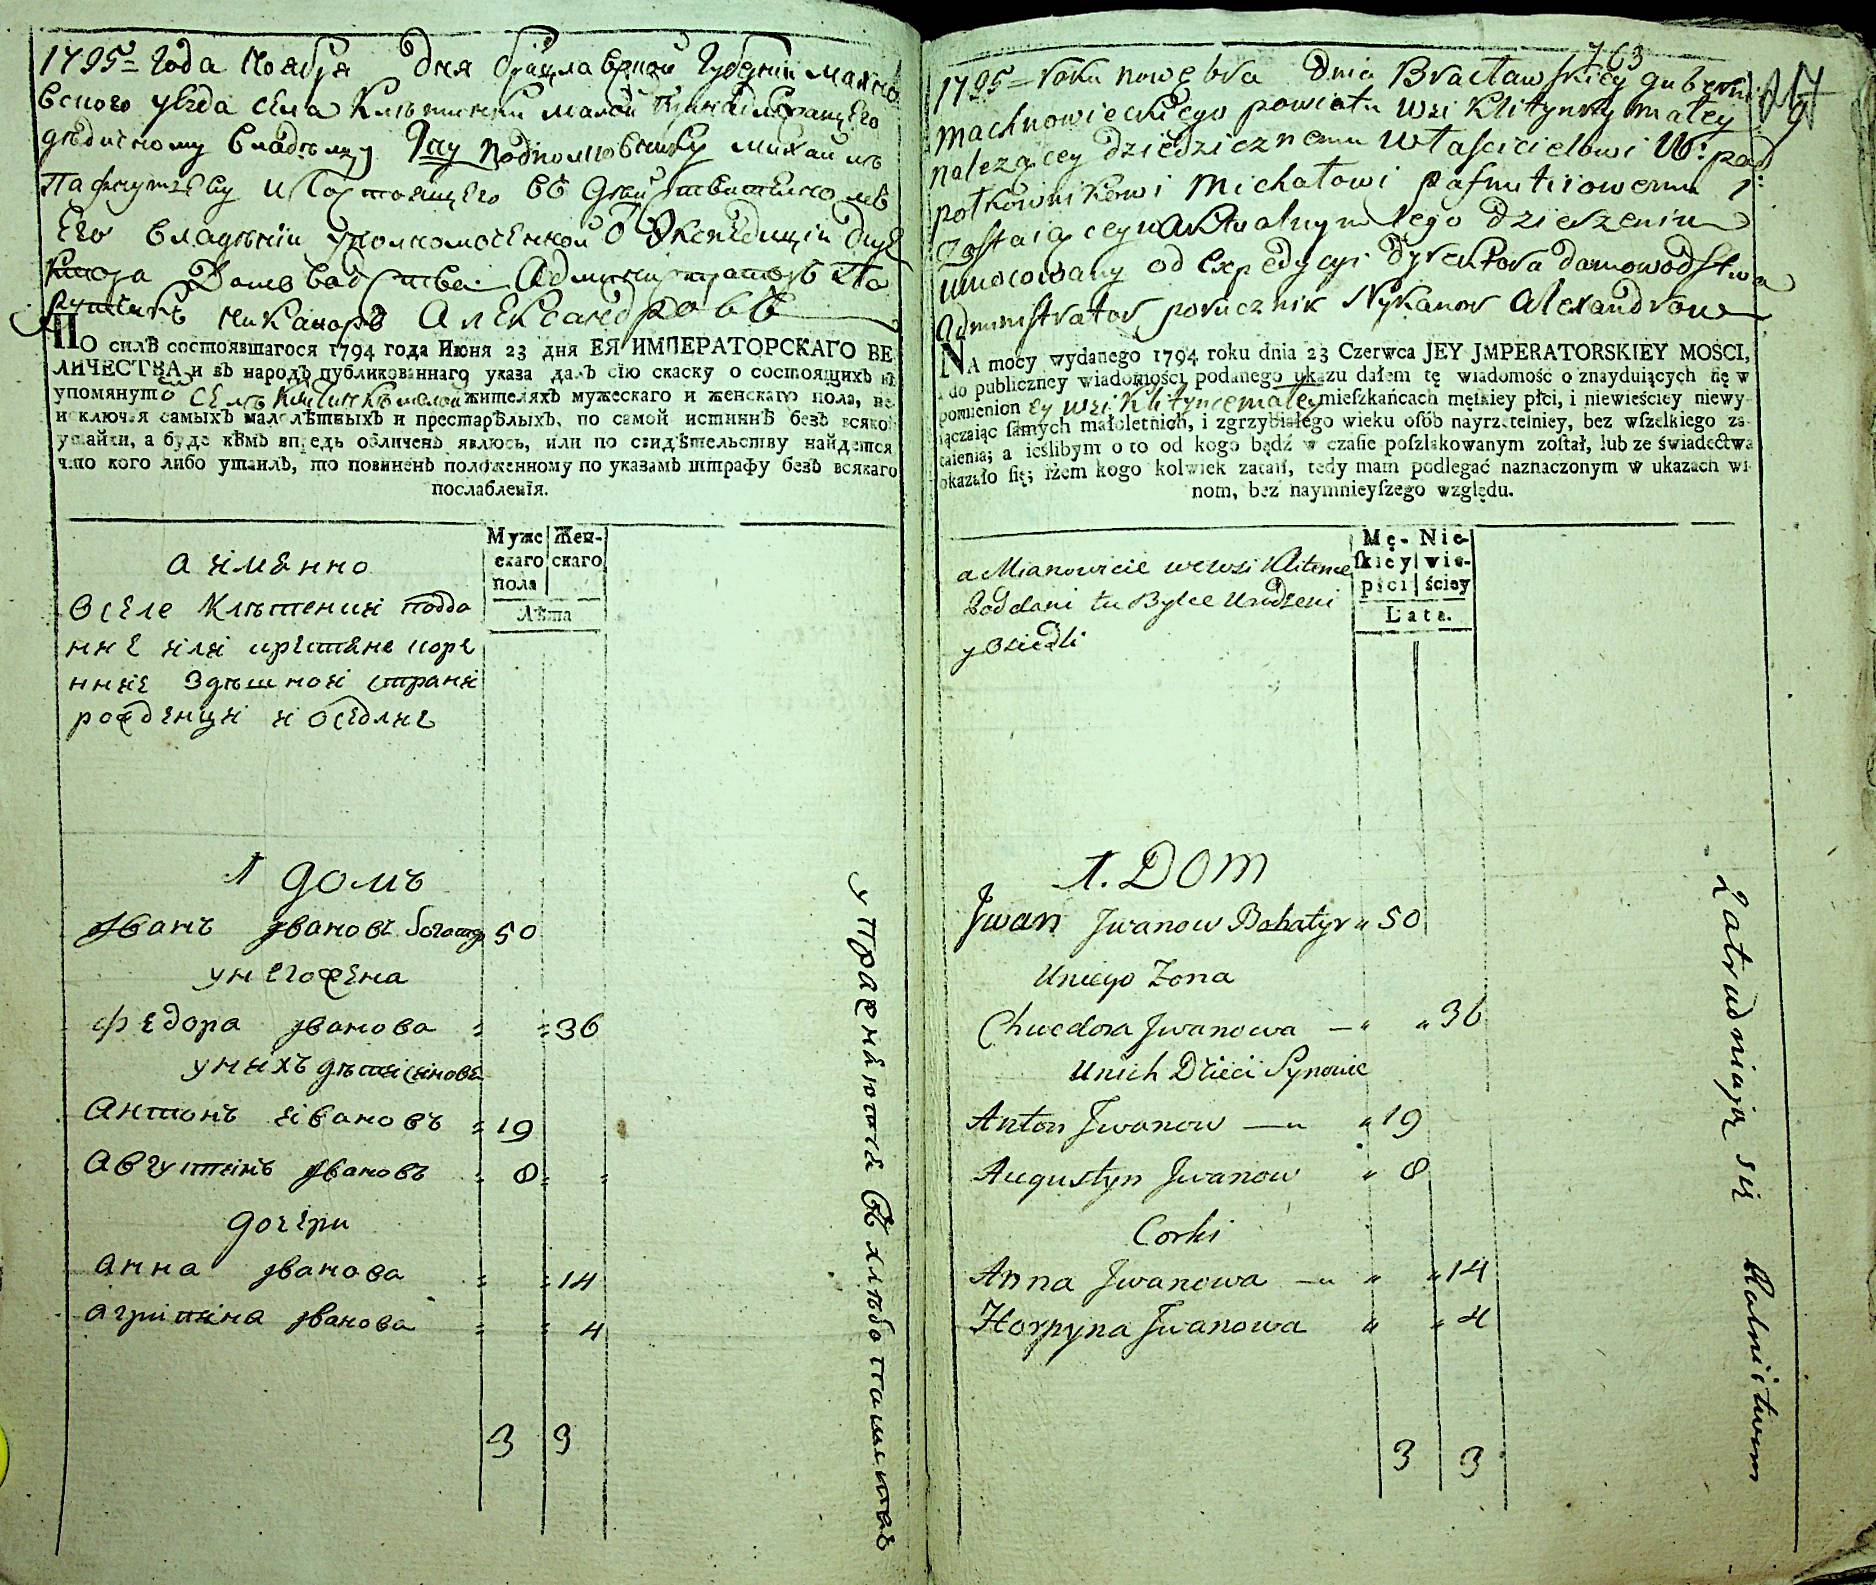 1795 = года Ноября Дня брацлавской Губернии махно
вского уезда села Клитинки малой принадлежащего
дедичному владелцу Гну подполковнику михаилу
Пафнутиеву и состоящего въ действительномъ
Его владении уполномоченной отъ Експедиции дире
ктора Домоводства Администраторъ По
ручикъ Никаноръ Александровъ
ПО силѣ состоявшагося 1794 года Июня 23 дня ЕЯ ИМПЕРАТОРСКАГО ВЕ
ЛИЧЕСТВА и въ народъ публикованнаго указа далъ сїю скаску о состоящихъ в
упомянуто й селѣ Клитинкѣ малой жителяхъ мужескаго и женскаго пола, не
исключая самыхъ малолѣтныхъ и престарѣлыхъ, по самой истиннѣ безъ всякой
утайки, а буде кѣмъ впредь обличенъ явлюсь, или по свидѣтельству найдется
что кого либо утаилъ, то повиненъ положенному по указамъ штрафу безъ всякаго
послабленїя.
Муже
скаго
пола
Жен-
скаго
Лѣта
а именно
Вселе Клѣтенки подда
нне или крестяне коре
нние Здешной страни
рожденци и оседлие
1 домъ
Иванъ Ивановъ богатир 50
унегожена
Федора Иванова = = 36
унихъ дети синове
Антонъ Ивановъ = 19
Августинъ Ивановъ = 8 =
дочери
Анна Иванова = = 14
Агрипина Иванова = = 4
3 3
упражняются въ хлѣбопашествѣ
763
1795 = roku nowębra dnia Bracławskiey gubernii
machnowieckiego powiatu wsi Klitynky małey
należącey dziedzicznemu właścicielowi W: pod
połkownikowi Michałowi pafnutiiowemu i
zostaiącey w aktualnym iego dzierzeniu
umocowany od Expedycyi dyrektora damowodstwa
administrator porucznik Nykanor Alexandrow
NA mocy wydanego 1794 roku dnia 23 Czerwca JEY JMPERATORSKIEY MOŚCI,
do publiczney wiadomości podanego ukazu dałem tę wiadomość o znayduiących się w
pomienion ey wsi Klityncemałey mieszkańcach męskiey płci, i niewieściey niewy-
łączaiąc samych małoletnich, i zgrzybiałego wieku osób nayrzetelniey, bez wszelkiego za-
taienia; a ieślibym o to od kogo bądź w czasie poszlakowanym został, lub ze świadectwa
okazało się; iżem kogo kolwiek zataił, tedy mam podlegać naznaczonym w ukazach wi-
nom, bez naymnieyszego względu.
Mę-
skiey
płci
Nie-
wie-
ściey
Lata.
a Mianowicie wewsi Klitence
Poddani tu Bylce Urodzeni
y Osiedli
1. DOM
Jwan Jwanow Bohatyr " 50
Uniego Zona
Chwedora Jwanowa — " " 36
Unich Dzieci Synowie
Anton Jwanow — " " 19
Augustyn Jwanow " 8
Corki
Anna Jwanowa — " " " 14
Horpyna Jwanowa " " 4
3 3
Zatrudniaią się Rolnictwem